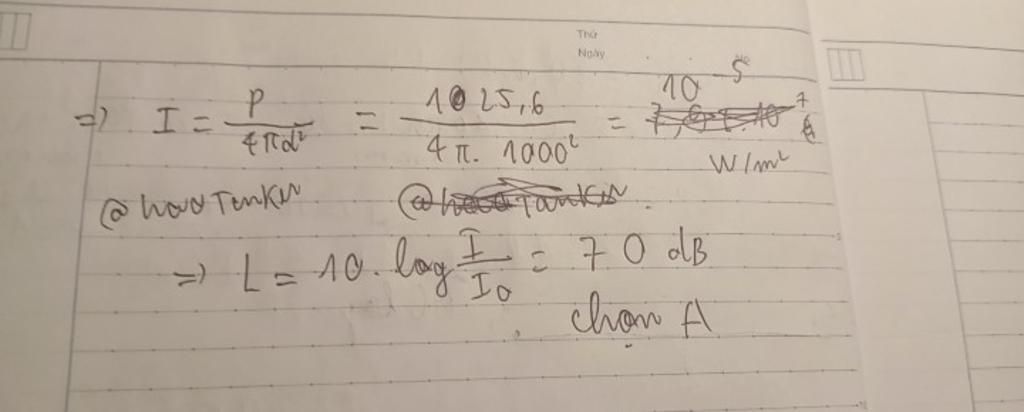 Thứ
Ngày
=> I = P/4πd² = 1025,6/4π. 1000² = 10⁻⁵ W/m²
@haoTankN
=> L = 10. log I/I₀ = 70 dB
chọn A